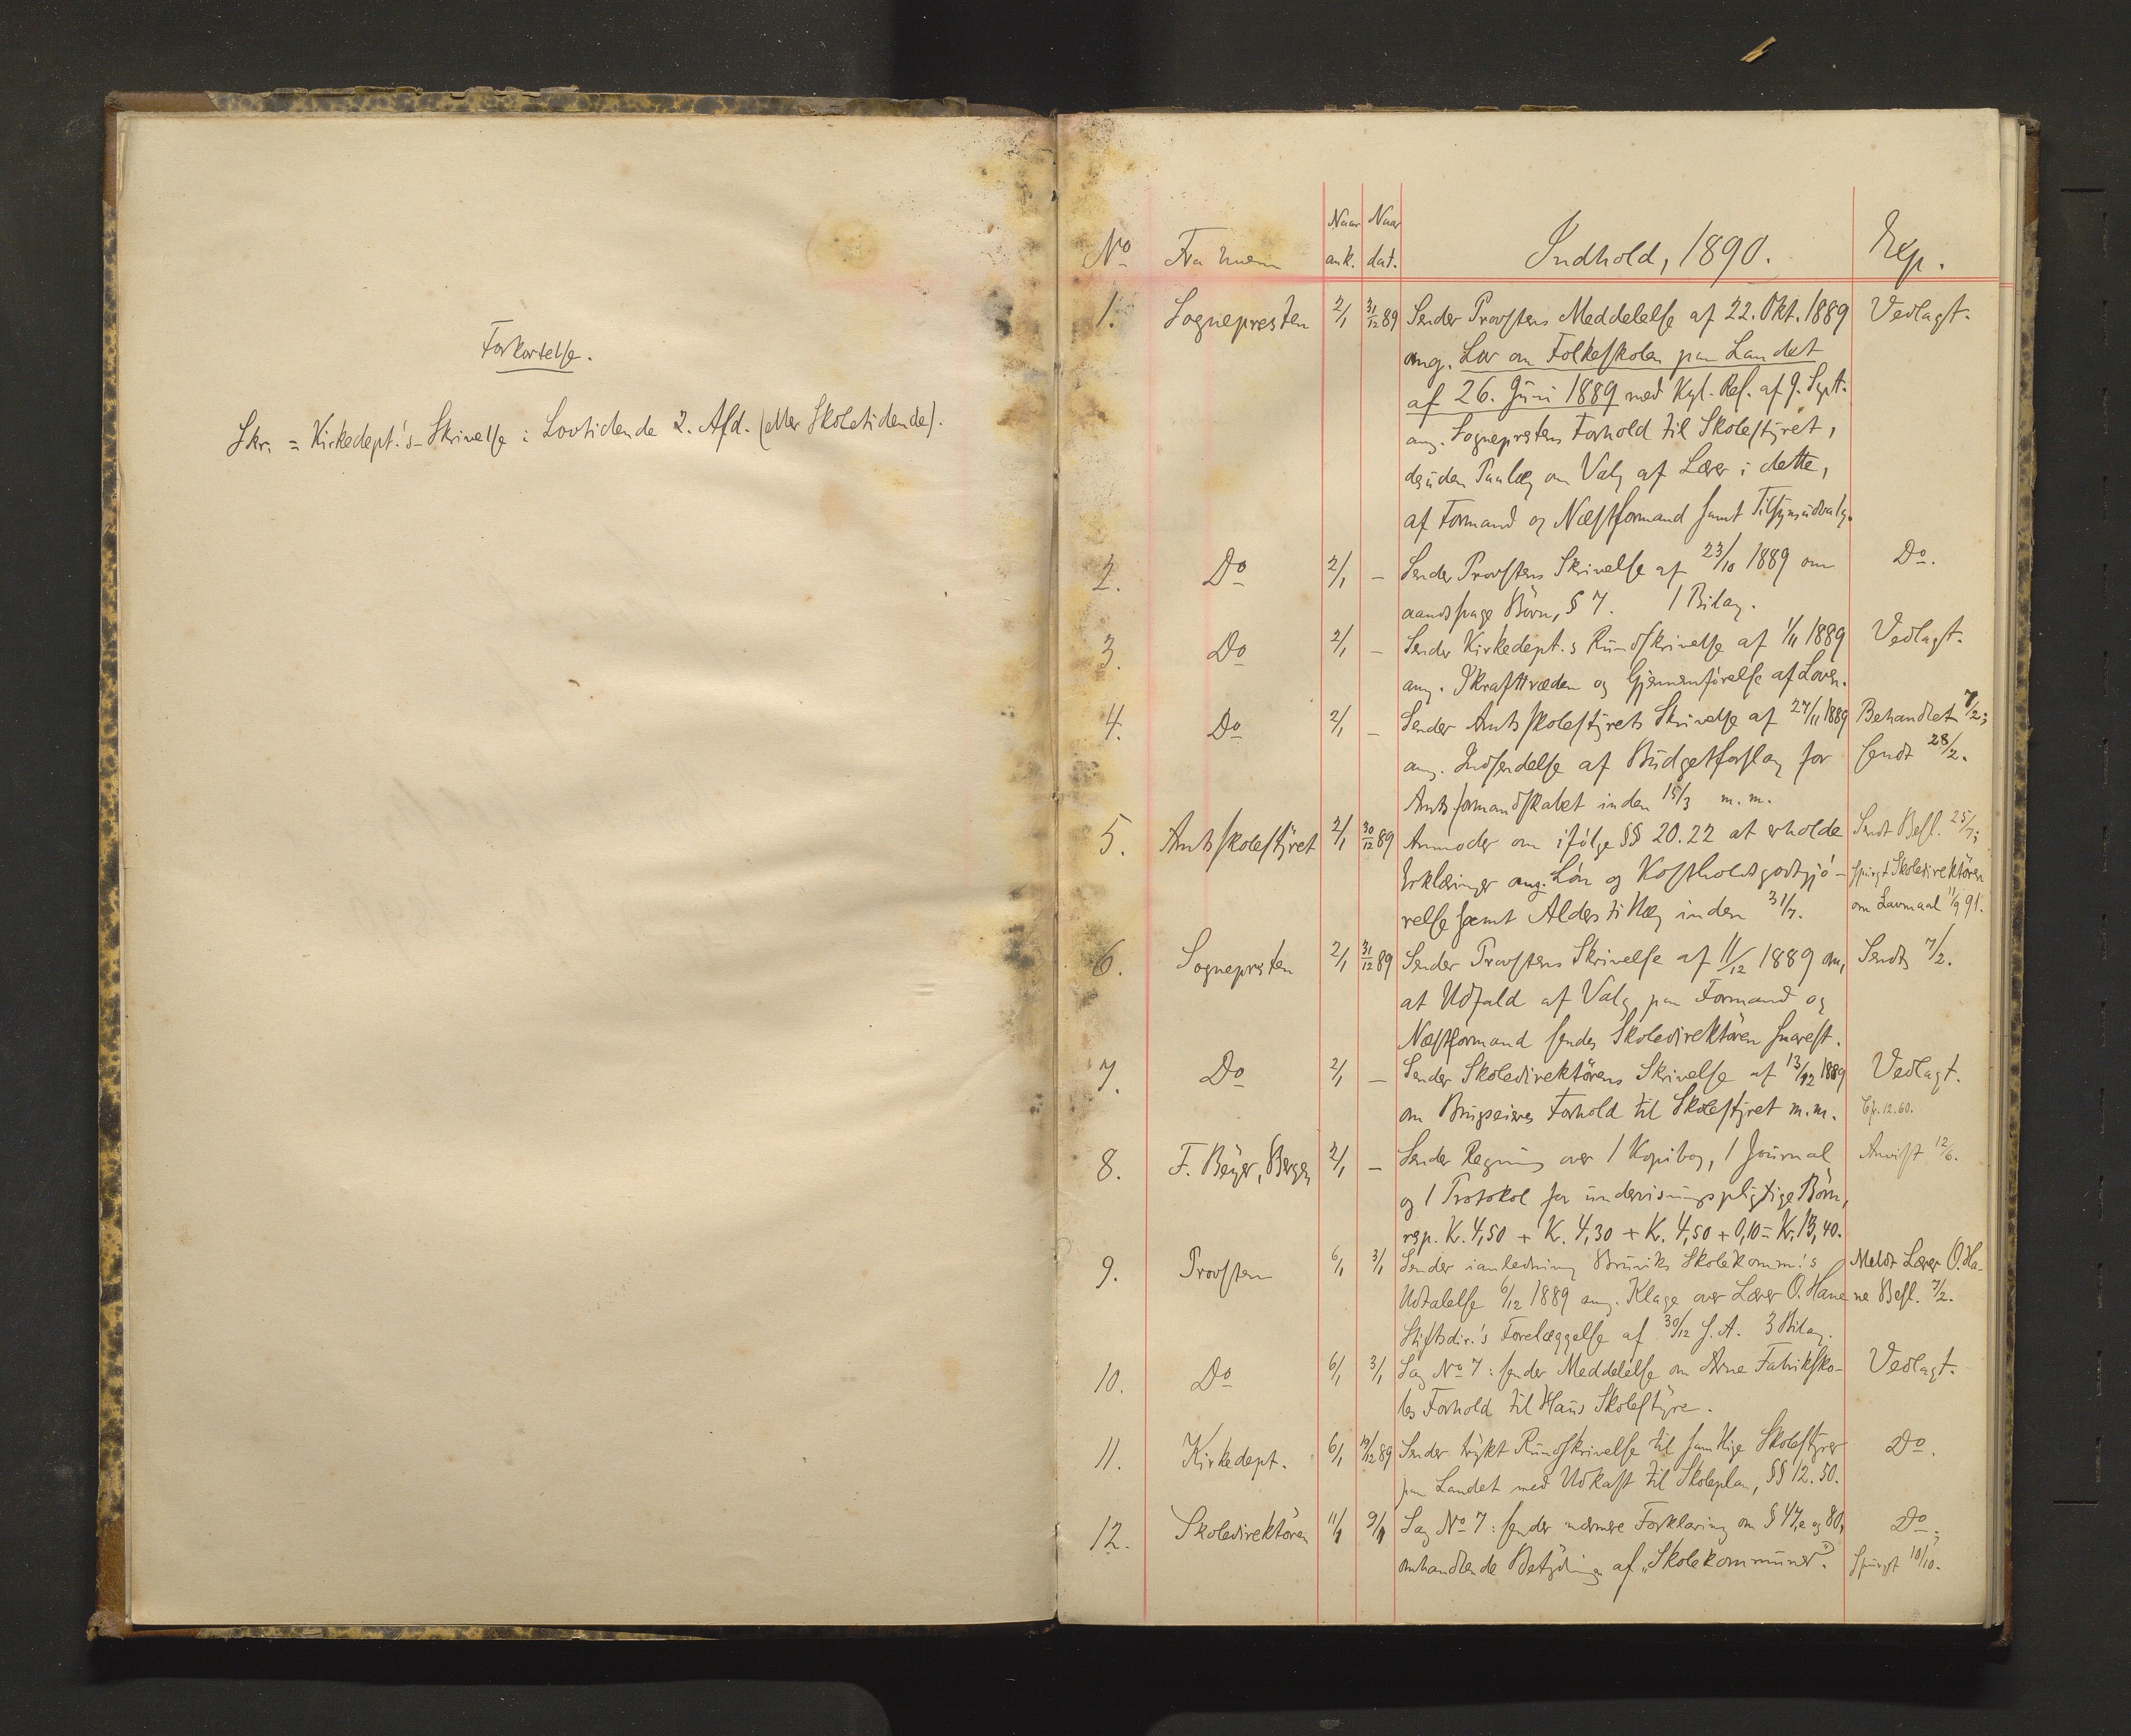 Forkortelse.
Skr. = Kirkedept.'s Skrivelse i Lovtidende 2. Afd. (eller Skoletidende).
No Fra hvem Naar ank. Naar dat. Indhold, 1890. Exp.
1. Sognepresten 2/1 31/12 89 Sender Provstens Meddelelse af 22. Okt. 1889 Vedlagt.
ang. Lov om Folkeskolen paa Landet
af 26. Juni 1889 med Kgl. Res. af 9. Sept.
ang. Sogneprestens Forhold til Skolestyret,
desuden Paalæg om Valg af Lærer i dette,
af Formand og Næstformand samt Tilsynsudvalg.
2. Do 2/1 – Sender Provstens Skrivelse af 23/10 1889 om Do.
aandssvage Börn, § 7. 1 Bilag.
3. Do 2/1 – Sender Kirkedept.s Rundskrivelse af 1/11 1889 Vedlagt.
ang. Ikrafttræden og Gjennemförelse af Loven.
4. Do 2/1 – Sender Amtsskolestyrets Skrivelse af 27/11 1889 Behandlet 7/2;
ang. Indsendelse af Budgetforslag for sendt 28/2.
Amtsformandskabet inden 15/3 m.m.
5. Amtsskolestyret 2/1 30/12 89 Anmoder om ifölge §§ 20. 22 at erholde Sendt Besl. 25/7;
Erklæringer ang. Lön og Kostholdsgodtgjö- spurgt Skoledirektören
relse samt Alderstillæg inden 31/7. om Lavmaal 11/9 91.
6. Sognepresten 2/1 31/12 89 Sender Provstens Skrivelse af 11/12 1889 om, Sendt 7/2.
at Udfald af Valg paa Formand og
Næstformand sendes Skoledirektören snarest.
7. Do 2/1 – Sender Skoledirektörens Skrivelse af 13/12 1889 Vedlagt.
om Brugseieres Forhold til Skolestyret m.m. Cfr. 12. 60.
8. F. Beyer, Bergen 2/1 – Sender Regning over 1 Kopibog, 1 Journal Anvist 12/6.
og 1 Protokol for undervisningspligtige Börn,
resp. Kr. 4,50 + Kr. 4,30 + Kr. 4,50 + 0,10 = Kr. 13,40.
9. Provsten 6/1 3/1 Sender i anledning Bruviks Skolekomm.'s Meldt Lærer O. Ha-
Udtalelse 6/12 1889 ang. Klage over Lærer O. Hane ne Besl. 7/2.
Stiftsdir.'s Forelæggelse af 30/12 s. A. 3 Bilag.
10. Do 6/1 3/1 Sag No 7: sender Meddelelse om Arne Fabriksko- Vedlagt.
les Forhold til Haus Skolestyre.
11. Kirkedept. 6/1 19/12 89 Sender trykt Rundskrivelse til samtlige Skolestyrer Do.
paa Landet med Udkast til Skoleplan, §§ 12. 50.
12. Skoledirektören 11/1 9/1 Sag No 7: sender nærmere Forklaring om § 47,e og 80, Do;
omhandlende Betydningen af "Skolekommuner". Spurgt 10/10.